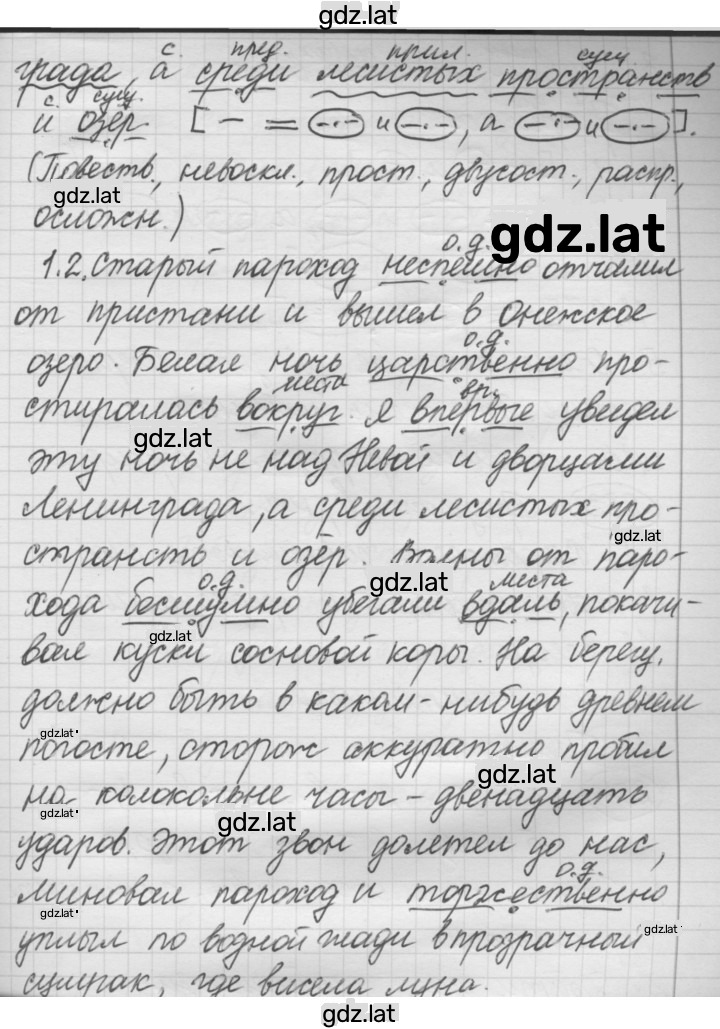 gdz.lat
с. пред. прил. сущ.
града, а среди лесистых пространств
с. сущ.
и озёр. [ – = –·–· и –·–· , а –·–· и –·–· ].
(Повеств., невоскл., прост., двусост., распр.,
gdz.lat
осложн.)
gdz.lat
о.д.
1.2. Старый пароход неспешно отчалил
от пристани и вышел в Онежское
о.д.
озеро. Белая ночь царственно про-
места вр.
стиралась вокруг. Я впервые увидел
gdz.lat
эту ночь не над Невой и дворцами
Ленинграда, а среди лесистых про-
gdz.lat
странств и озёр. Волны от паро-
о.д. gdz.lat места
хода бесшумно убегали вдаль, покачи-
gdz.lat
вая куски сосновой коры. На берегу,
должно быть в каком-нибудь древнем
gdz.lat
погосте, сторож аккуратно пробил
gdz.lat
на колокольне часы – двенадцать
gdz.lat gdz.lat
ударов. Этот звон долетел до нас,
о.д.
миновал пароход и торжественно
gdz.lat
уплыл по водной глади в прозрачный
gdz.lat
сумрак, где висела луна.
gdz.lat
gdz.lat